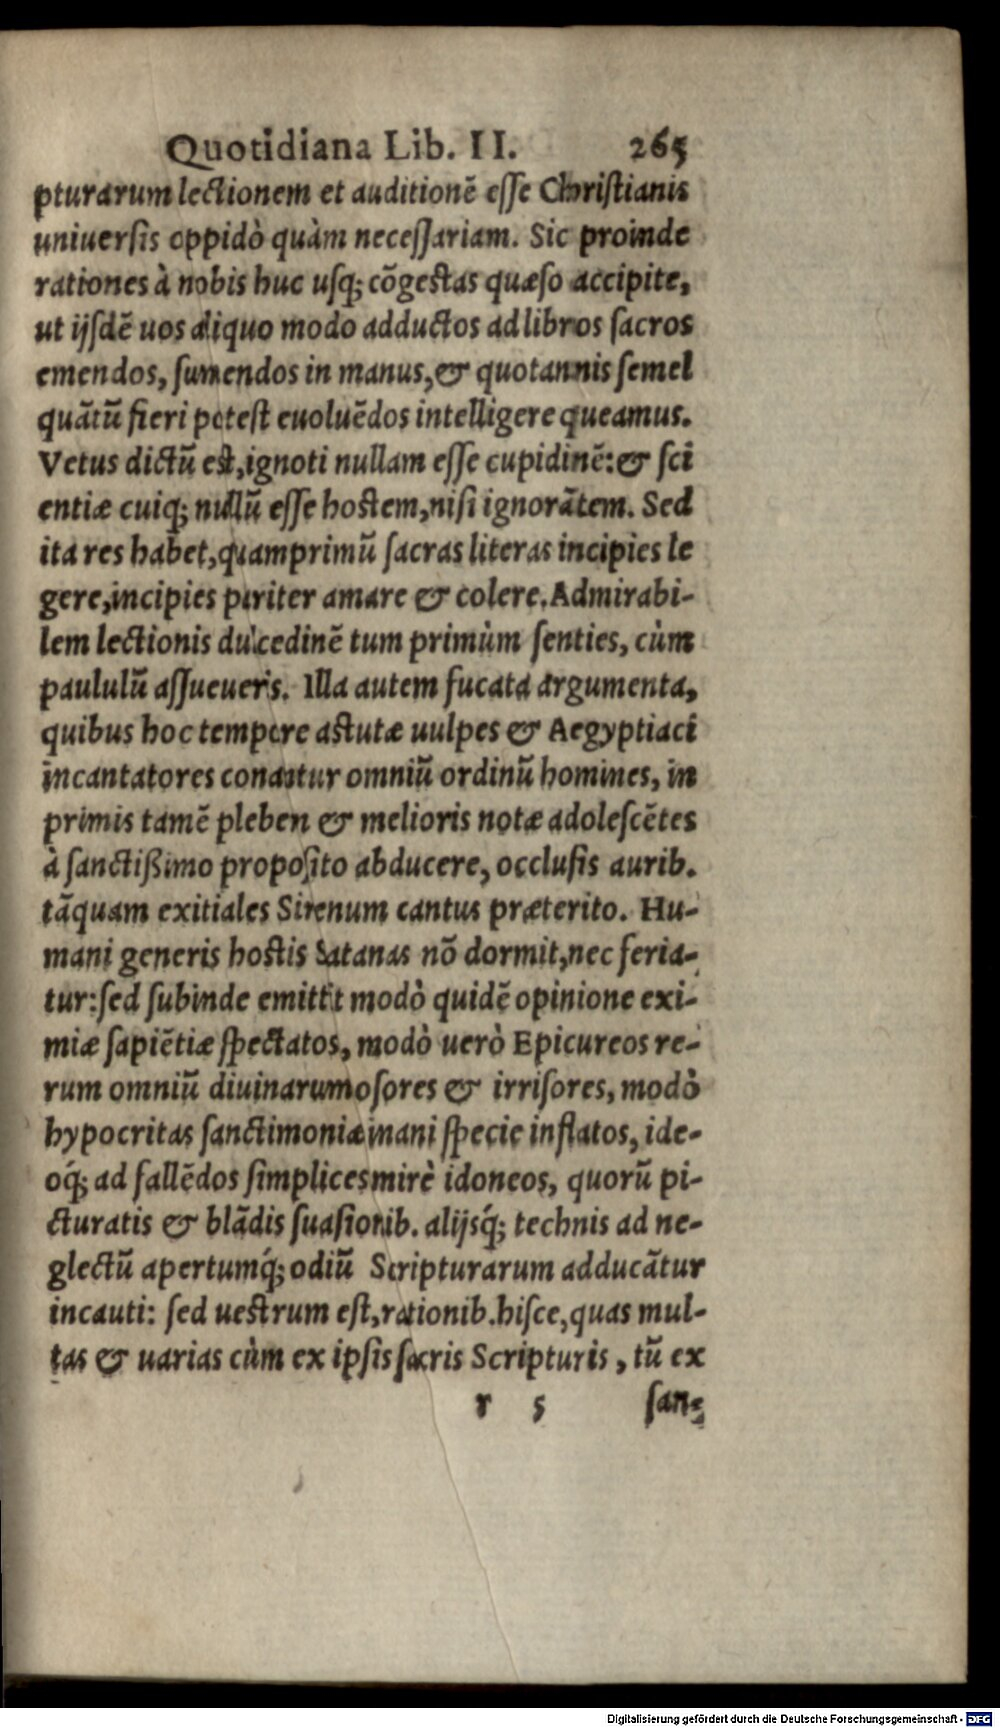 Quotidiana Lib. II. 265
pturarum lectionem et auditionē eſſe Chriſtianis
uniuerſis oppidò quàm neceſſariam. Sic proinde
rationes à nobis huc uſq; cōgeſtas quæſo accipite,
ut ijſdē uos aliquo modo adductos ad libros ſacros
emendos, ſumendos in manus, & quotannis ſemel
quātū fieri poteſt euoluēdos intelligere queamus.
Vetus dictū eſt, ignoti nullam eſſe cupidinē: & ſci
entiæ cuiq; nullū eſſe hoſtem, niſi ignorātem. Sed
ita res habet, quamprimū ſacras literas incipies le
gere, incipies pariter amare & colere. Admirabi-
lem lectionis dulcedinē tum primùm ſenties, cùm
paululū aſſueueris. Illa autem fucata argumenta,
quibus hoc tempore aſtutæ uulpes & Aegyptiaci
incantatores conantur omniū ordinū homines, in
primis tamē pleben & melioris notæ adoleſcētes
à ſanctißimo propoſito abducere, occluſis aurib.
tāquam exitiales Sirenum cantus præterito. Hu-
mani generis hoſtis Satanas nō dormit, nec feria-
tur: ſed ſubinde emittit modò quidē opinione exi-
miæ ſapiētiæ ſpectatos, modò uerò Epicureos re-
rum omniū diuinarum oſores & irriſores, modò
hypocritas ſanctimoniæ inani ſpecie inflatos, ide-
oq́; ad fallēdos ſimplices mirè idoneos, quorū pi-
cturatis & blādis ſuaſionib. alijsq́; technis ad ne-
glectū apertumq́; odiū Scripturarum adducātur
incauti: ſed ueſtrum eſt, rationib. hiſce, quas mul-
tas & uarias cùm ex ipſis ſacris Scripturis, tū ex
r 5 ſan-
Digitalisierung gefördert durch die Deutsche Forschungsgemeinschaft - DFG